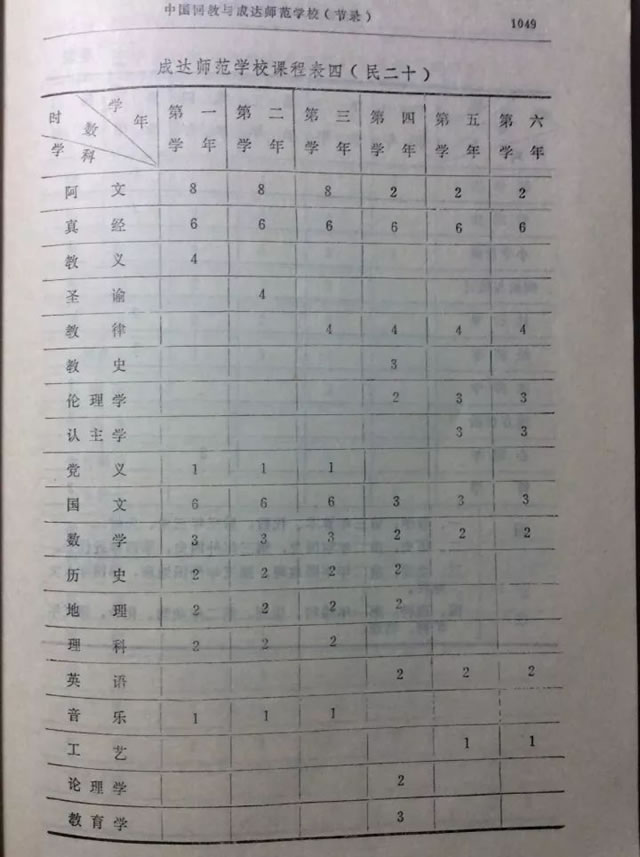 中国回教与成达师范学校（节录）
1049
成达师范学校课程表四（民二十）
学年 时数 学科 第一学年 第二学年 第三学年 第四学年 第五学年 第六学年
阿文 8 8 8 2 2 2
真经 6 6 6 6 6 6
教义 4
圣谕 4
教律 4 4 4 4
教史 3
伦理学 2 3 3
认主学 3 3
党义 1 1 1
国文 6 6 6 3 3 3
数学 3 3 3 2 2 2
历史 2 2 2 2
地理 2 2 2 2
理科 2 2 2
英语 2 2 2
音乐 1 1 1
工艺 1 1
论理学 2
教育学 3